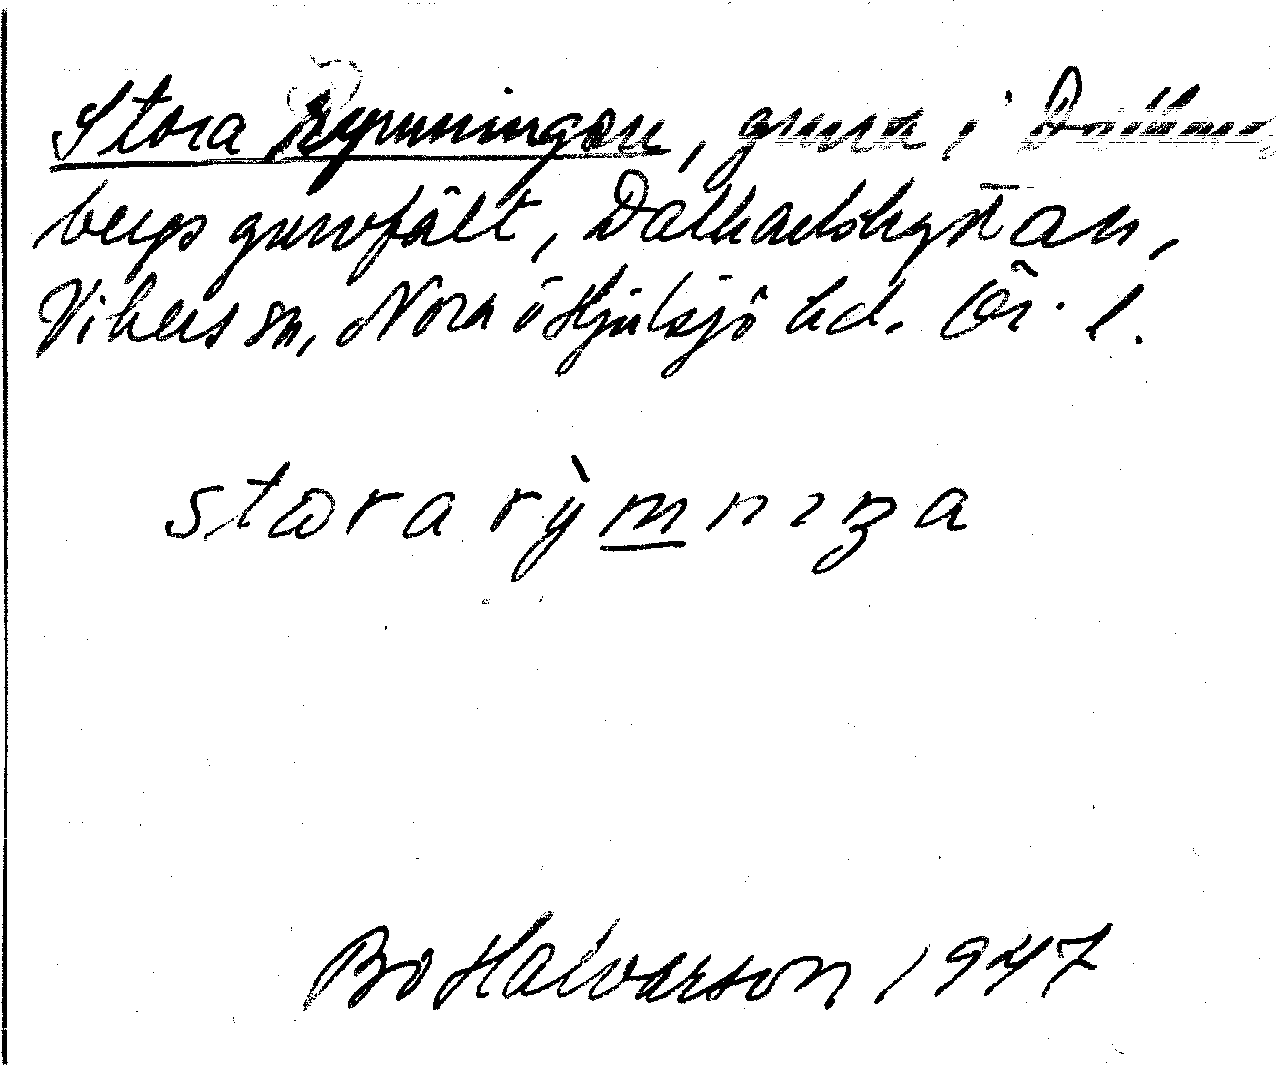 Stora Rymningen, gruva i
bergs gruvfält, Dalkarlshyttan,
Vikers sn, Nora o Hjulsjö hd. Ör. l.
stora rỳmnıŋa
Bo Halvarson 1947